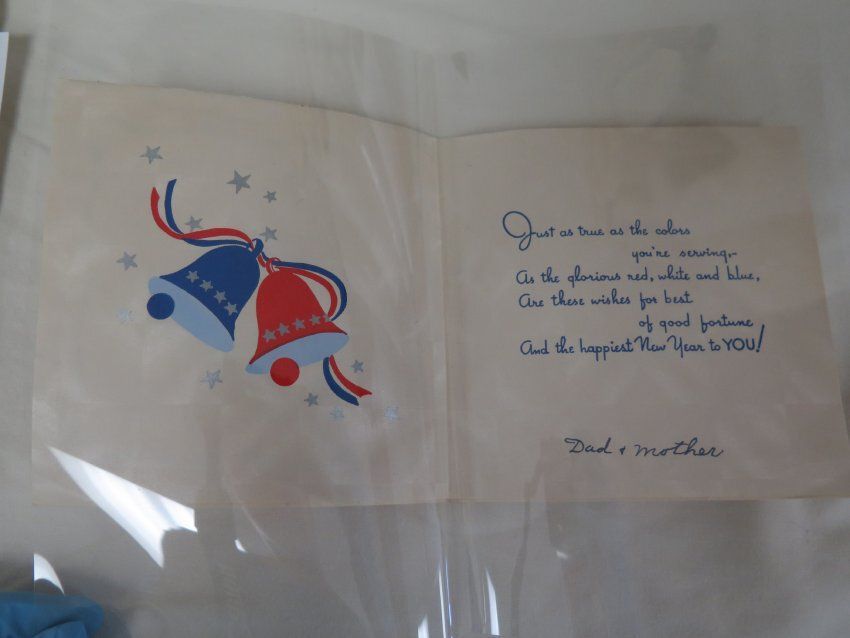 Just as true as the colors
you're serving,-
As the glorious red, white and blue,
Are these wishes for best
of good fortune
And the happiest New Year to YOU!
Dad + Mother